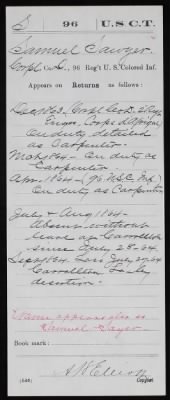 S 96 U.S.C.T.
Samuel Sawyer
Corpl Co. , 96 Reg't U. S. Colored Inf.
Appears on Returns as follows:
Dec 1863 Corpl Co.
Engr. Corps d'Afrique
On duty detailed
as Carpenter.
Mch 1864 - On duty as
Carpenter.
Apr. 1864 - (96 U.S.C. Inf.)
On duty as Carpenter
July & Aug 1864 -
Absent without
leave at Carrollton
since July 28-64.
Sept 1864 Loss July 29, 64
Carrollton La. by
desertion.
Name appears also as
Samuel Sayer
Book mark:
Copyist.
(546)